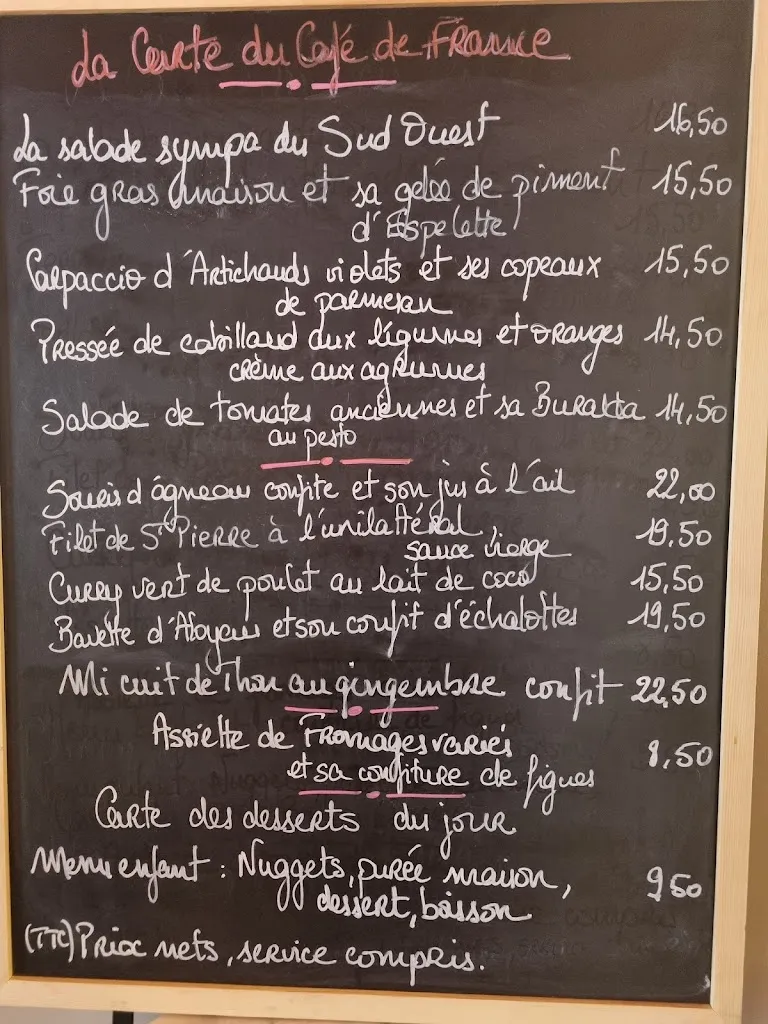 La Carte du Café de France
La salade sympa du Sud Ouest 16,50
Foie gras maison et sa gelée de piment 15,50
d'Espelette
Carpaccio d'Artichauds violets et ses copeaux 15,50
de parmesan
Pressée de cabillaud aux légumes et oranges 14,50
crème aux agrumes
Salade de tomates anciennes et sa Buratta 14,50
au pesto
Souris d'agneau confite et son jus à l'ail 22,00
Filet de St Pierre à l'unilattéral, 19.50
sauce vierge
Curry vert de poulet au lait de coco 15,50
Bavette d'Aloyau et son confit d'échalottes 19,50
Mi cuit de Thon au gingembre confit 22,50
Assiette de Fromages variés 8,50
et sa confiture de figues
Carte des desserts du jour
Menu enfant : Nuggets, purée maison, 9 50
dessert, boisson
(TTC) Priox nets, service compris.